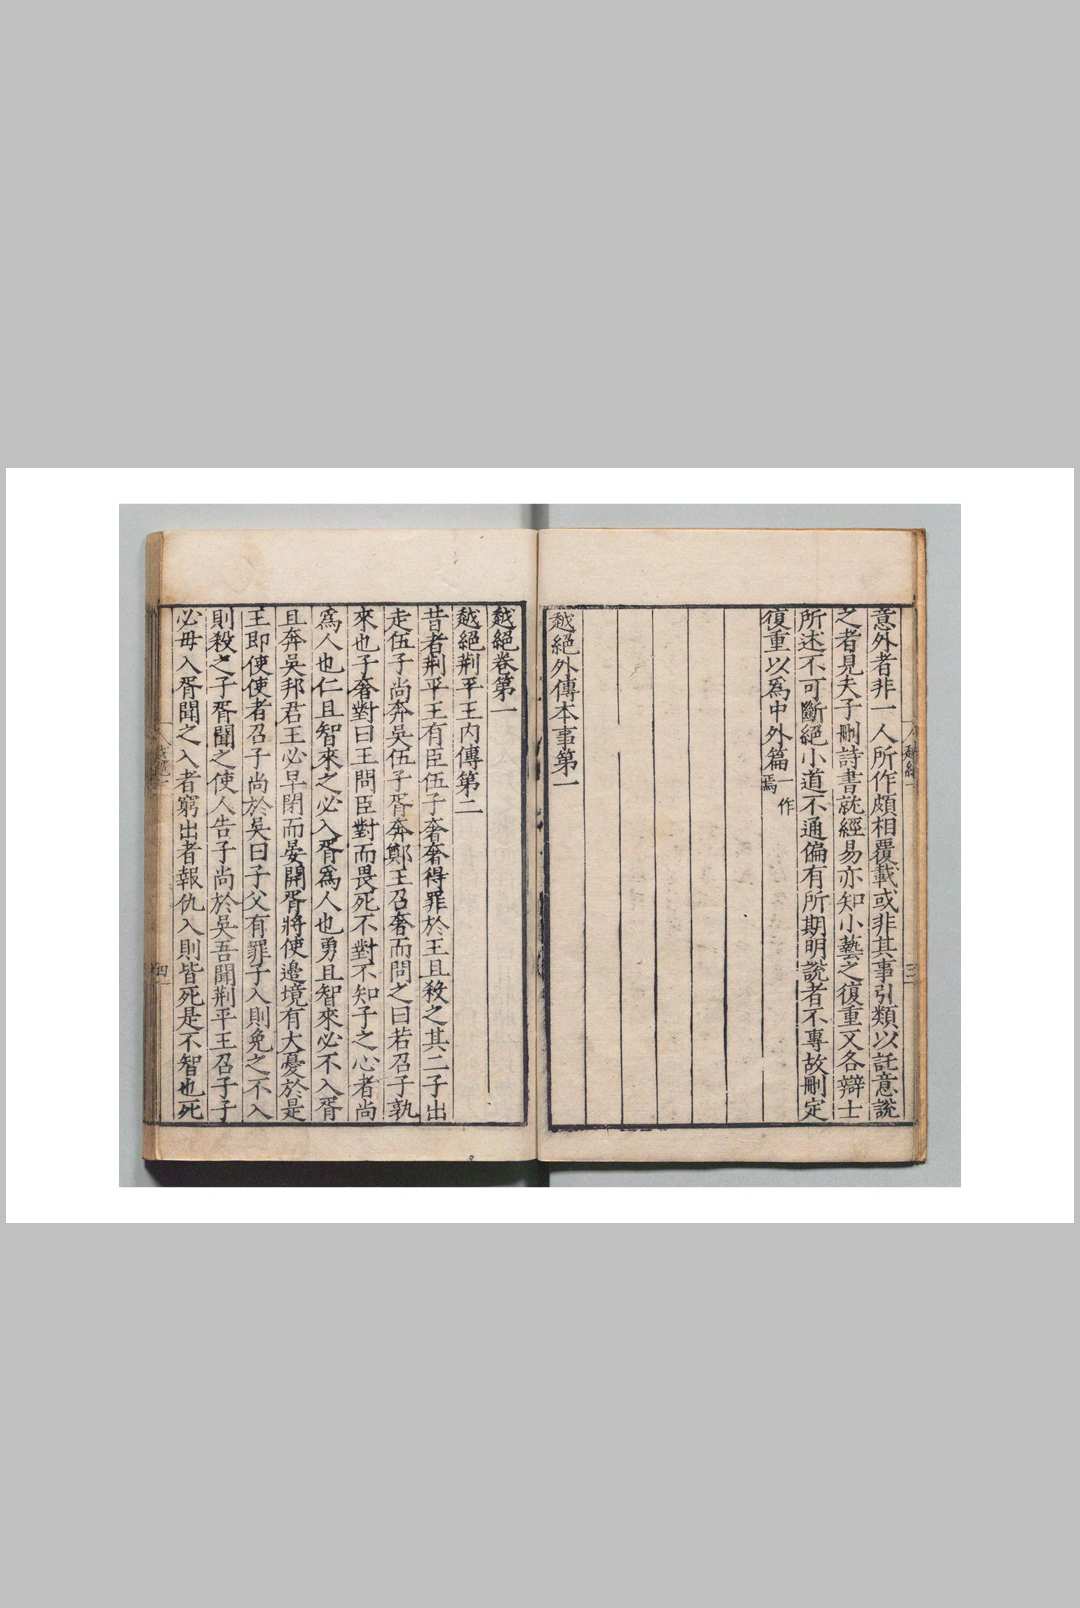 意外者非一人所作頗相覆載或非其事引類以託意說
之者見夫子刪詩書就經易亦知小藝之復重又各辯士
所述不可斷絕小道不通偏有所期明說者不專故刪定
復重以爲中外篇一作焉
越絕外傳本事第一
越絕卷第一
越絕荆平王內傳第二
昔者荆平王有臣伍子奢奢得罪於王且殺之其二子出
走伍子尚奔吳伍子胥奔鄭王召奢而問之曰若召子孰
來也子奢對曰王問臣對而畏死不對不知子之心者尚
爲人也仁且智來之必入胥爲人也勇且智來必不入胥
且奔吳邦君王必早閉而晏開胥將使邊境有大憂於是
王即使使者召子尚於吳曰子父有罪子入則免之不入
則殺之子胥聞之使人告子尚於吳吾聞荆平王召子子
必毋入胥聞之入者窮出者報仇入則皆死是不智也死